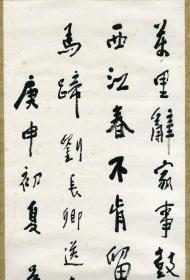 萬里辭家事鼓
西江春不肯留
馬蹄劉長卿送
庚申初夏